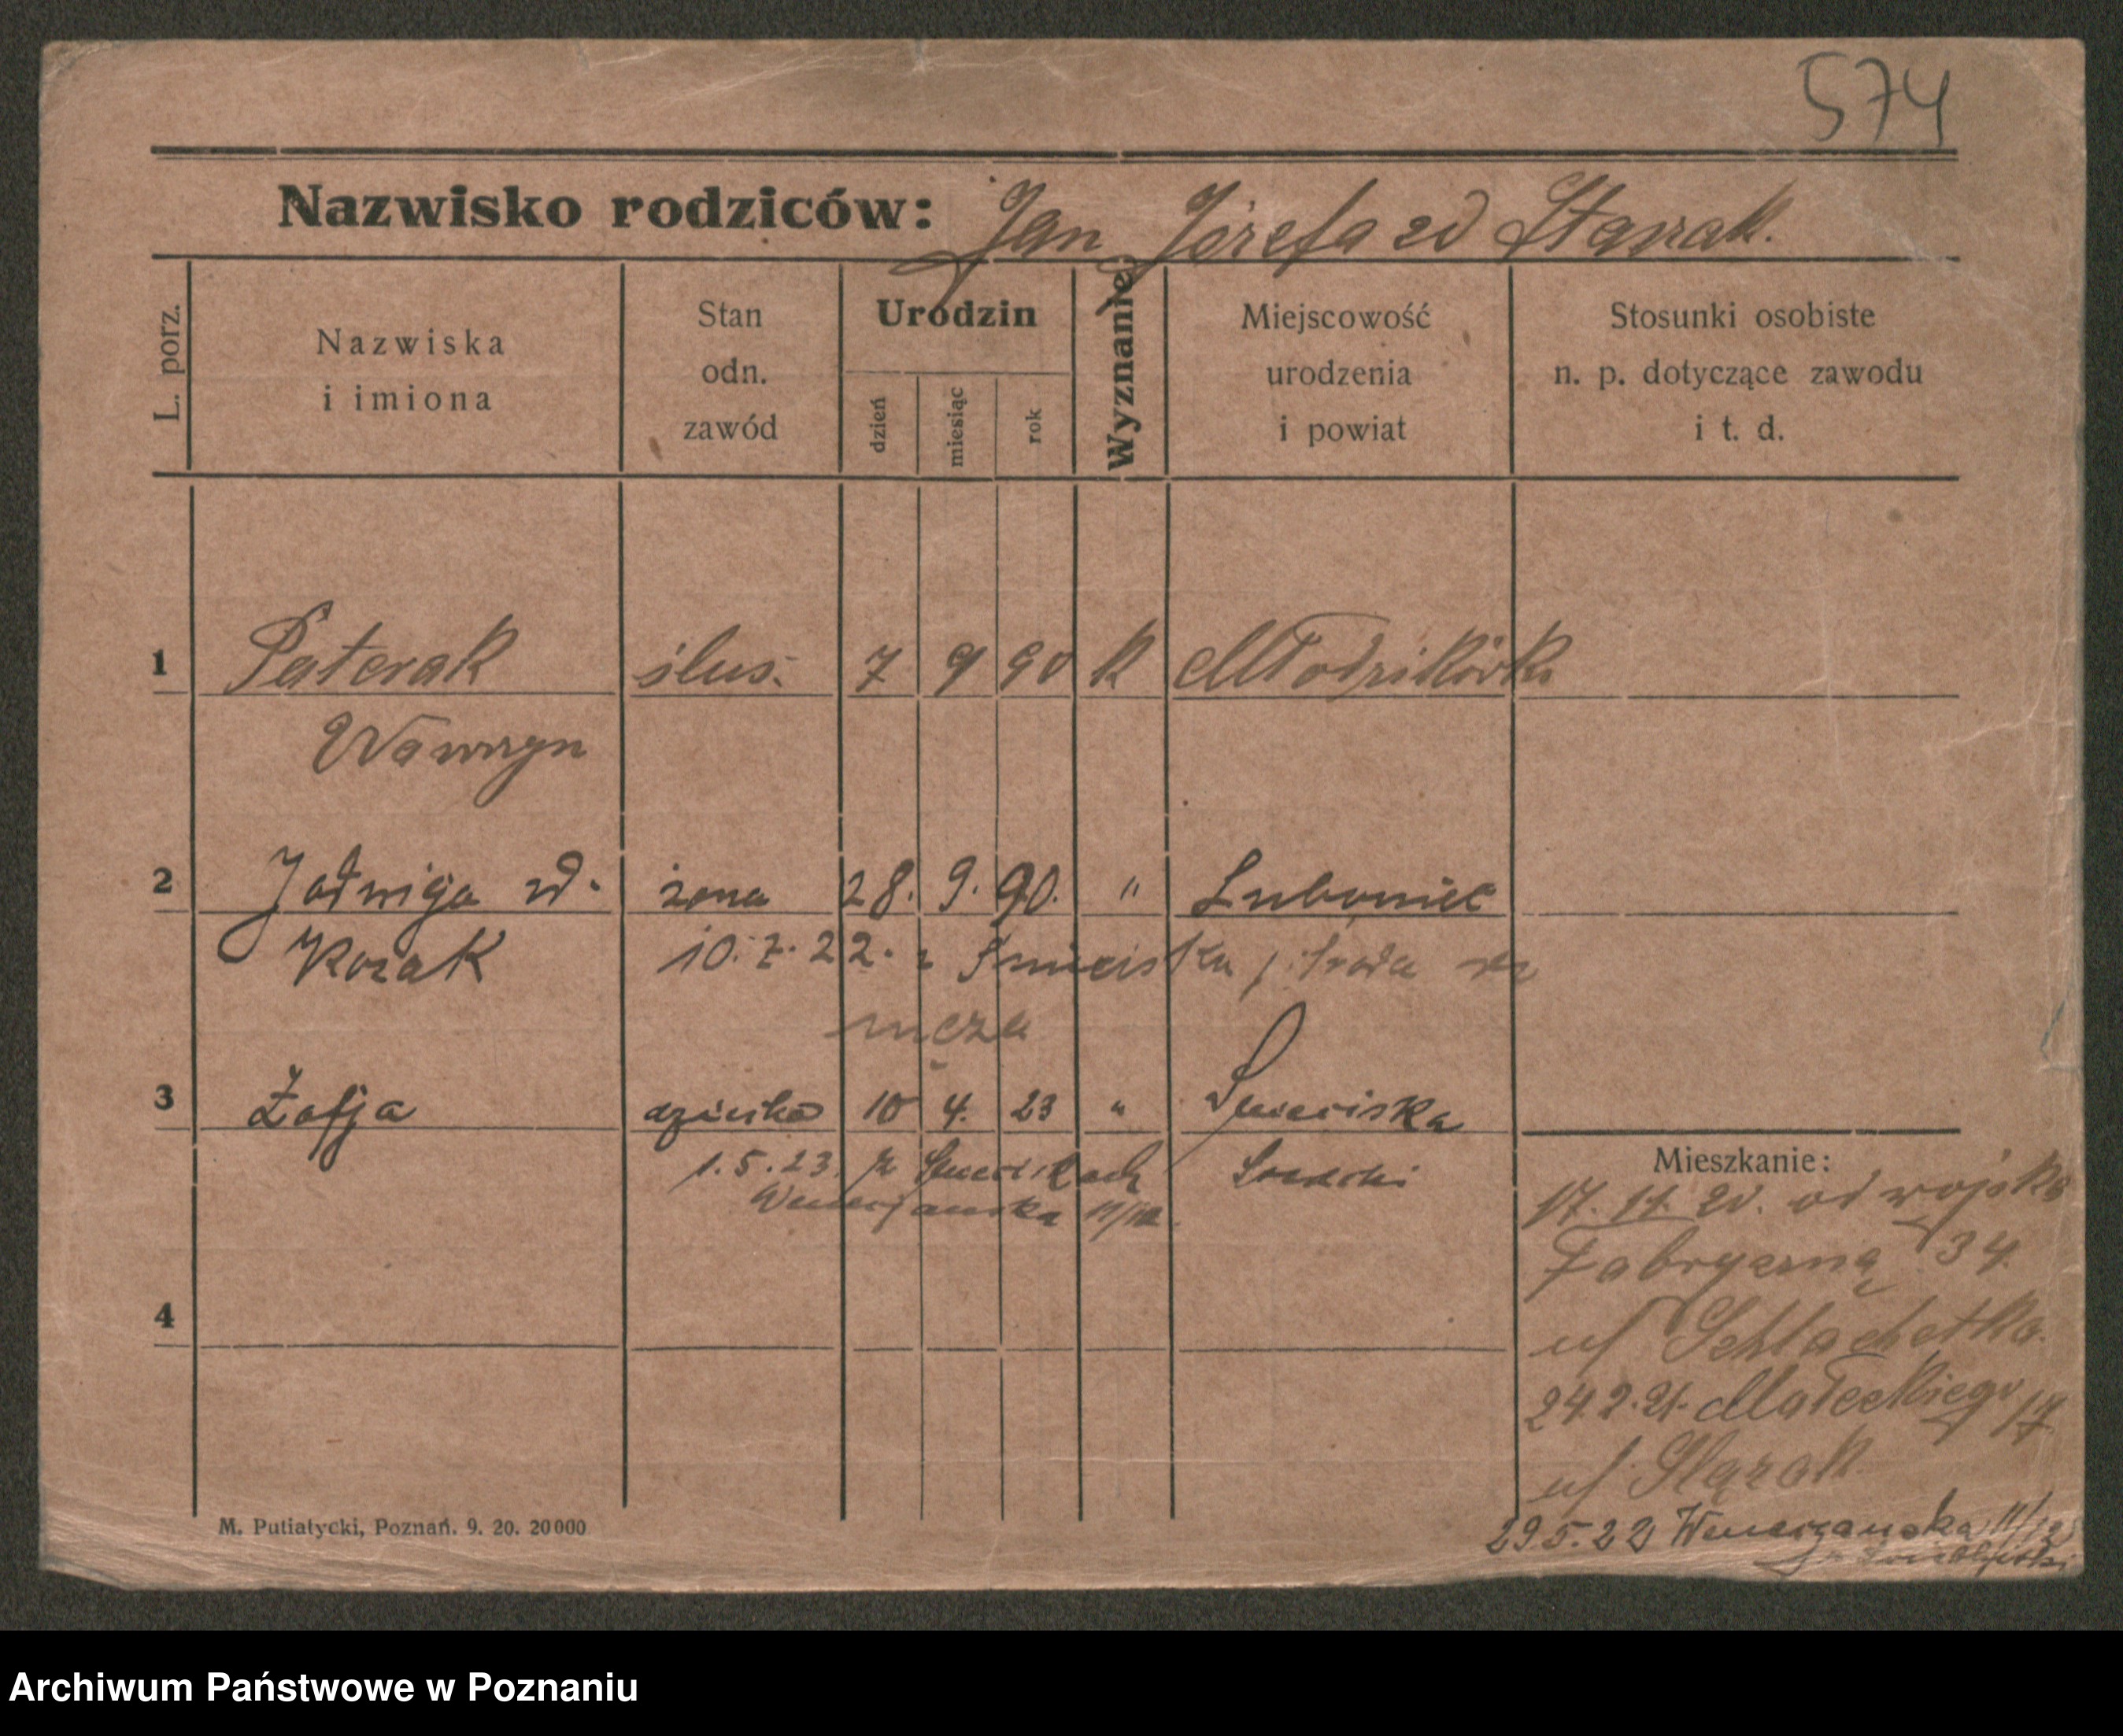 574
Nazwisko rodziców: Jan, Józefa zd Starzak.
L. porz.
Nazwiska
i imiona
Stan
odn.
zawód
Urodzin
dzień
miesiąc
rok
Wyznanie
Miejscowość
urodzenia
i powiat
Stosunki osobiste
n. p. dotyczące zawodu
i t. d.
1 Paterak ślus. 7 9 90 k Młodzikówko
Wawrzyn
2 Jadwiga zd. żona 28. 9. 90. " Luboniec
Kozak 10. 7. 22. z Śnieciska / Środa
męża
3 Zofja dziecko 10 4. 23 " Śnieciska
1. 5. 23. Średzki
Wenecjanska 11/12
Mieszkanie:
17. 11. 20. od wojska
Fabryczną 34.
u/ Schlachetka.
24. 2. 21. Małeckiego 17
u/
4
29 5. 22 Wenecjanska 11/12
M. Putiatycki, Poznań. 9. 20. 20000
Archiwum Państwowe w Poznaniu